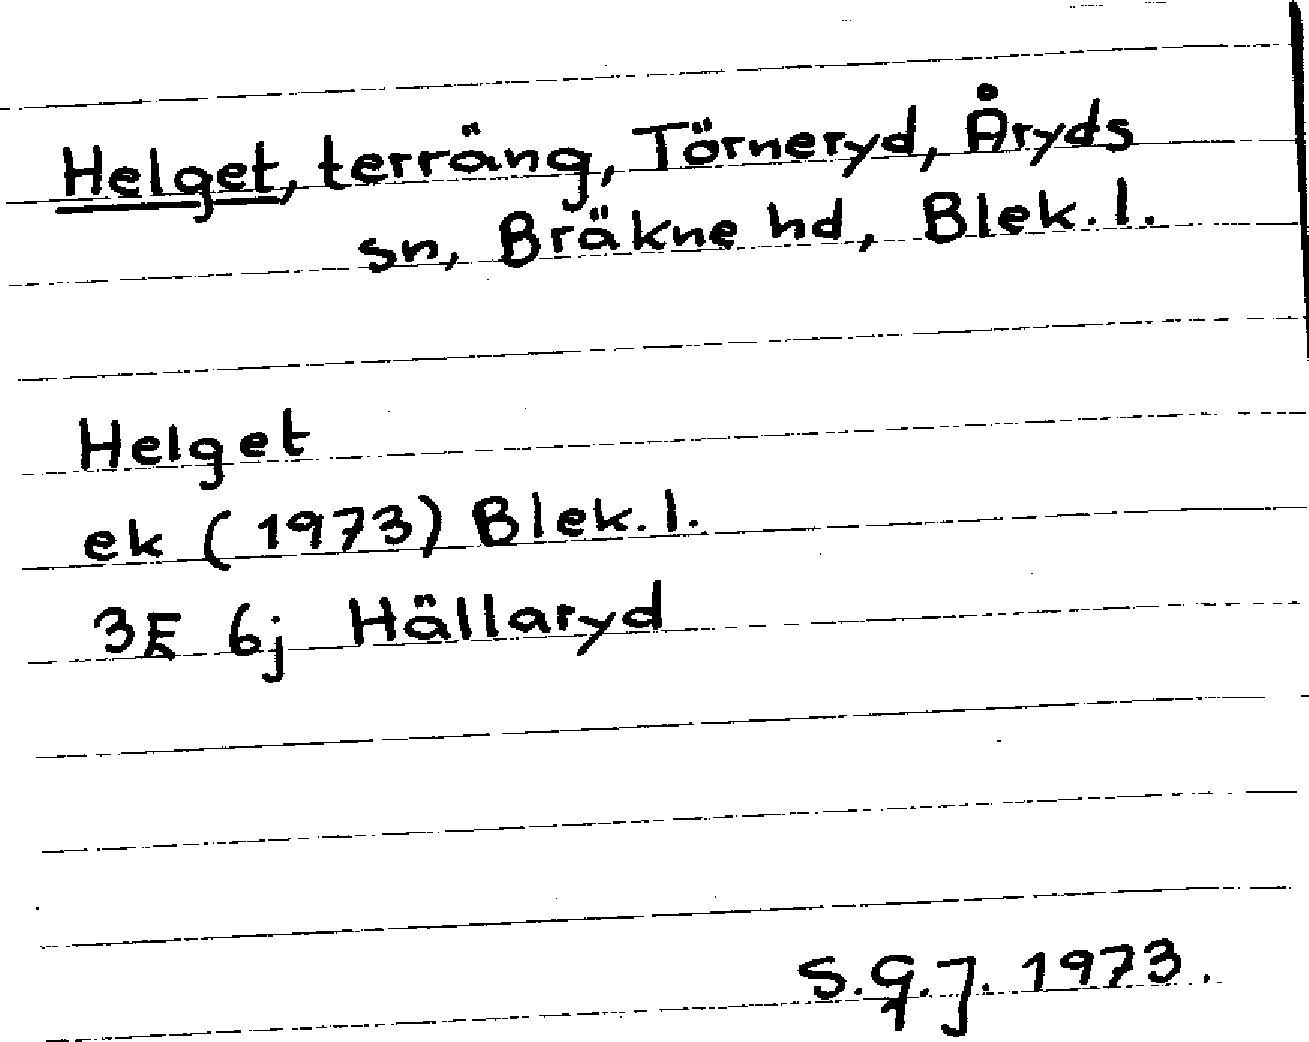 Helget, terräng, Törneryd, Åryds
sn, Bräkne hd, Blek. l.
Helget
ek (1973) Blek. l.
3E 6j Hällaryd
S.G.J. 1973.